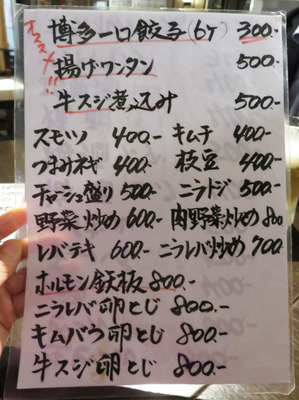 オススメ!!
博多一口餃子(6ケ) 300.-
揚げワンタン 500.-
牛スジ煮込み 500.-
スモツ 400.- キムチ 400.-
つまみネギ 400.- 枝豆 400.-
チャーシュ盛り 500.- ニラトジ 500.-
野菜炒め 600.- 肉野菜炒め 800
レバテキ 600.- ニラレバ炒め 700.
ホルモン鉄板 800.-
ニラレバ卵とじ 800.-
キムバラ卵とじ 800.-
牛スジ卵とじ 800.-